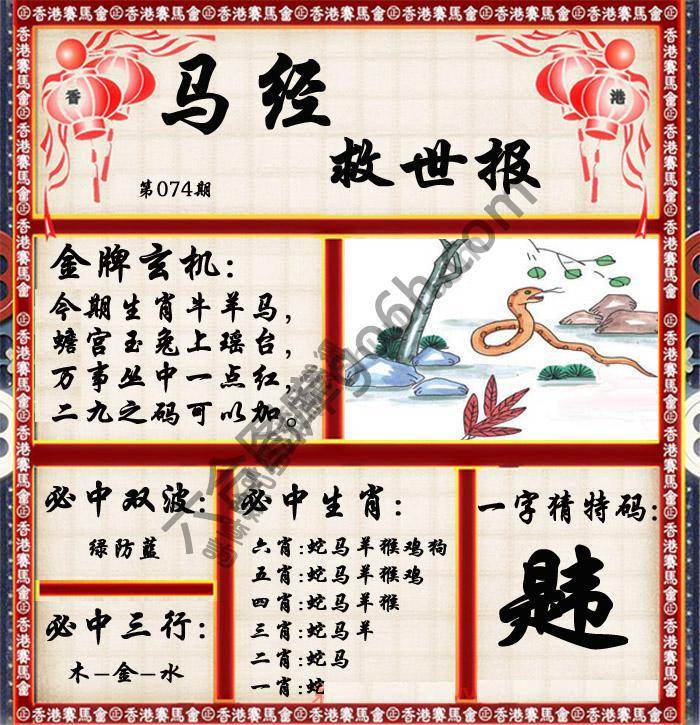 香港賽馬會㊣香港賽馬會㊣香港賽馬會㊣香港賽馬會㊣香港賽馬會㊣香港賽馬會
香
港
马经
救世报
第074期
金牌玄机:
今期生肖牛羊马,
蟾宫玉兔上瑶台,
万事丛中一点红,
二九之码可以加。
必中双波:
绿防蓝
必中三行:
木-金-水
必中生肖:
六肖:蛇马羊猴鸡狗
五肖:蛇马羊猴鸡
四肖:蛇马羊猴
三肖:蛇马羊
二肖:蛇马
一肖:蛇
一字猜特码:
韪